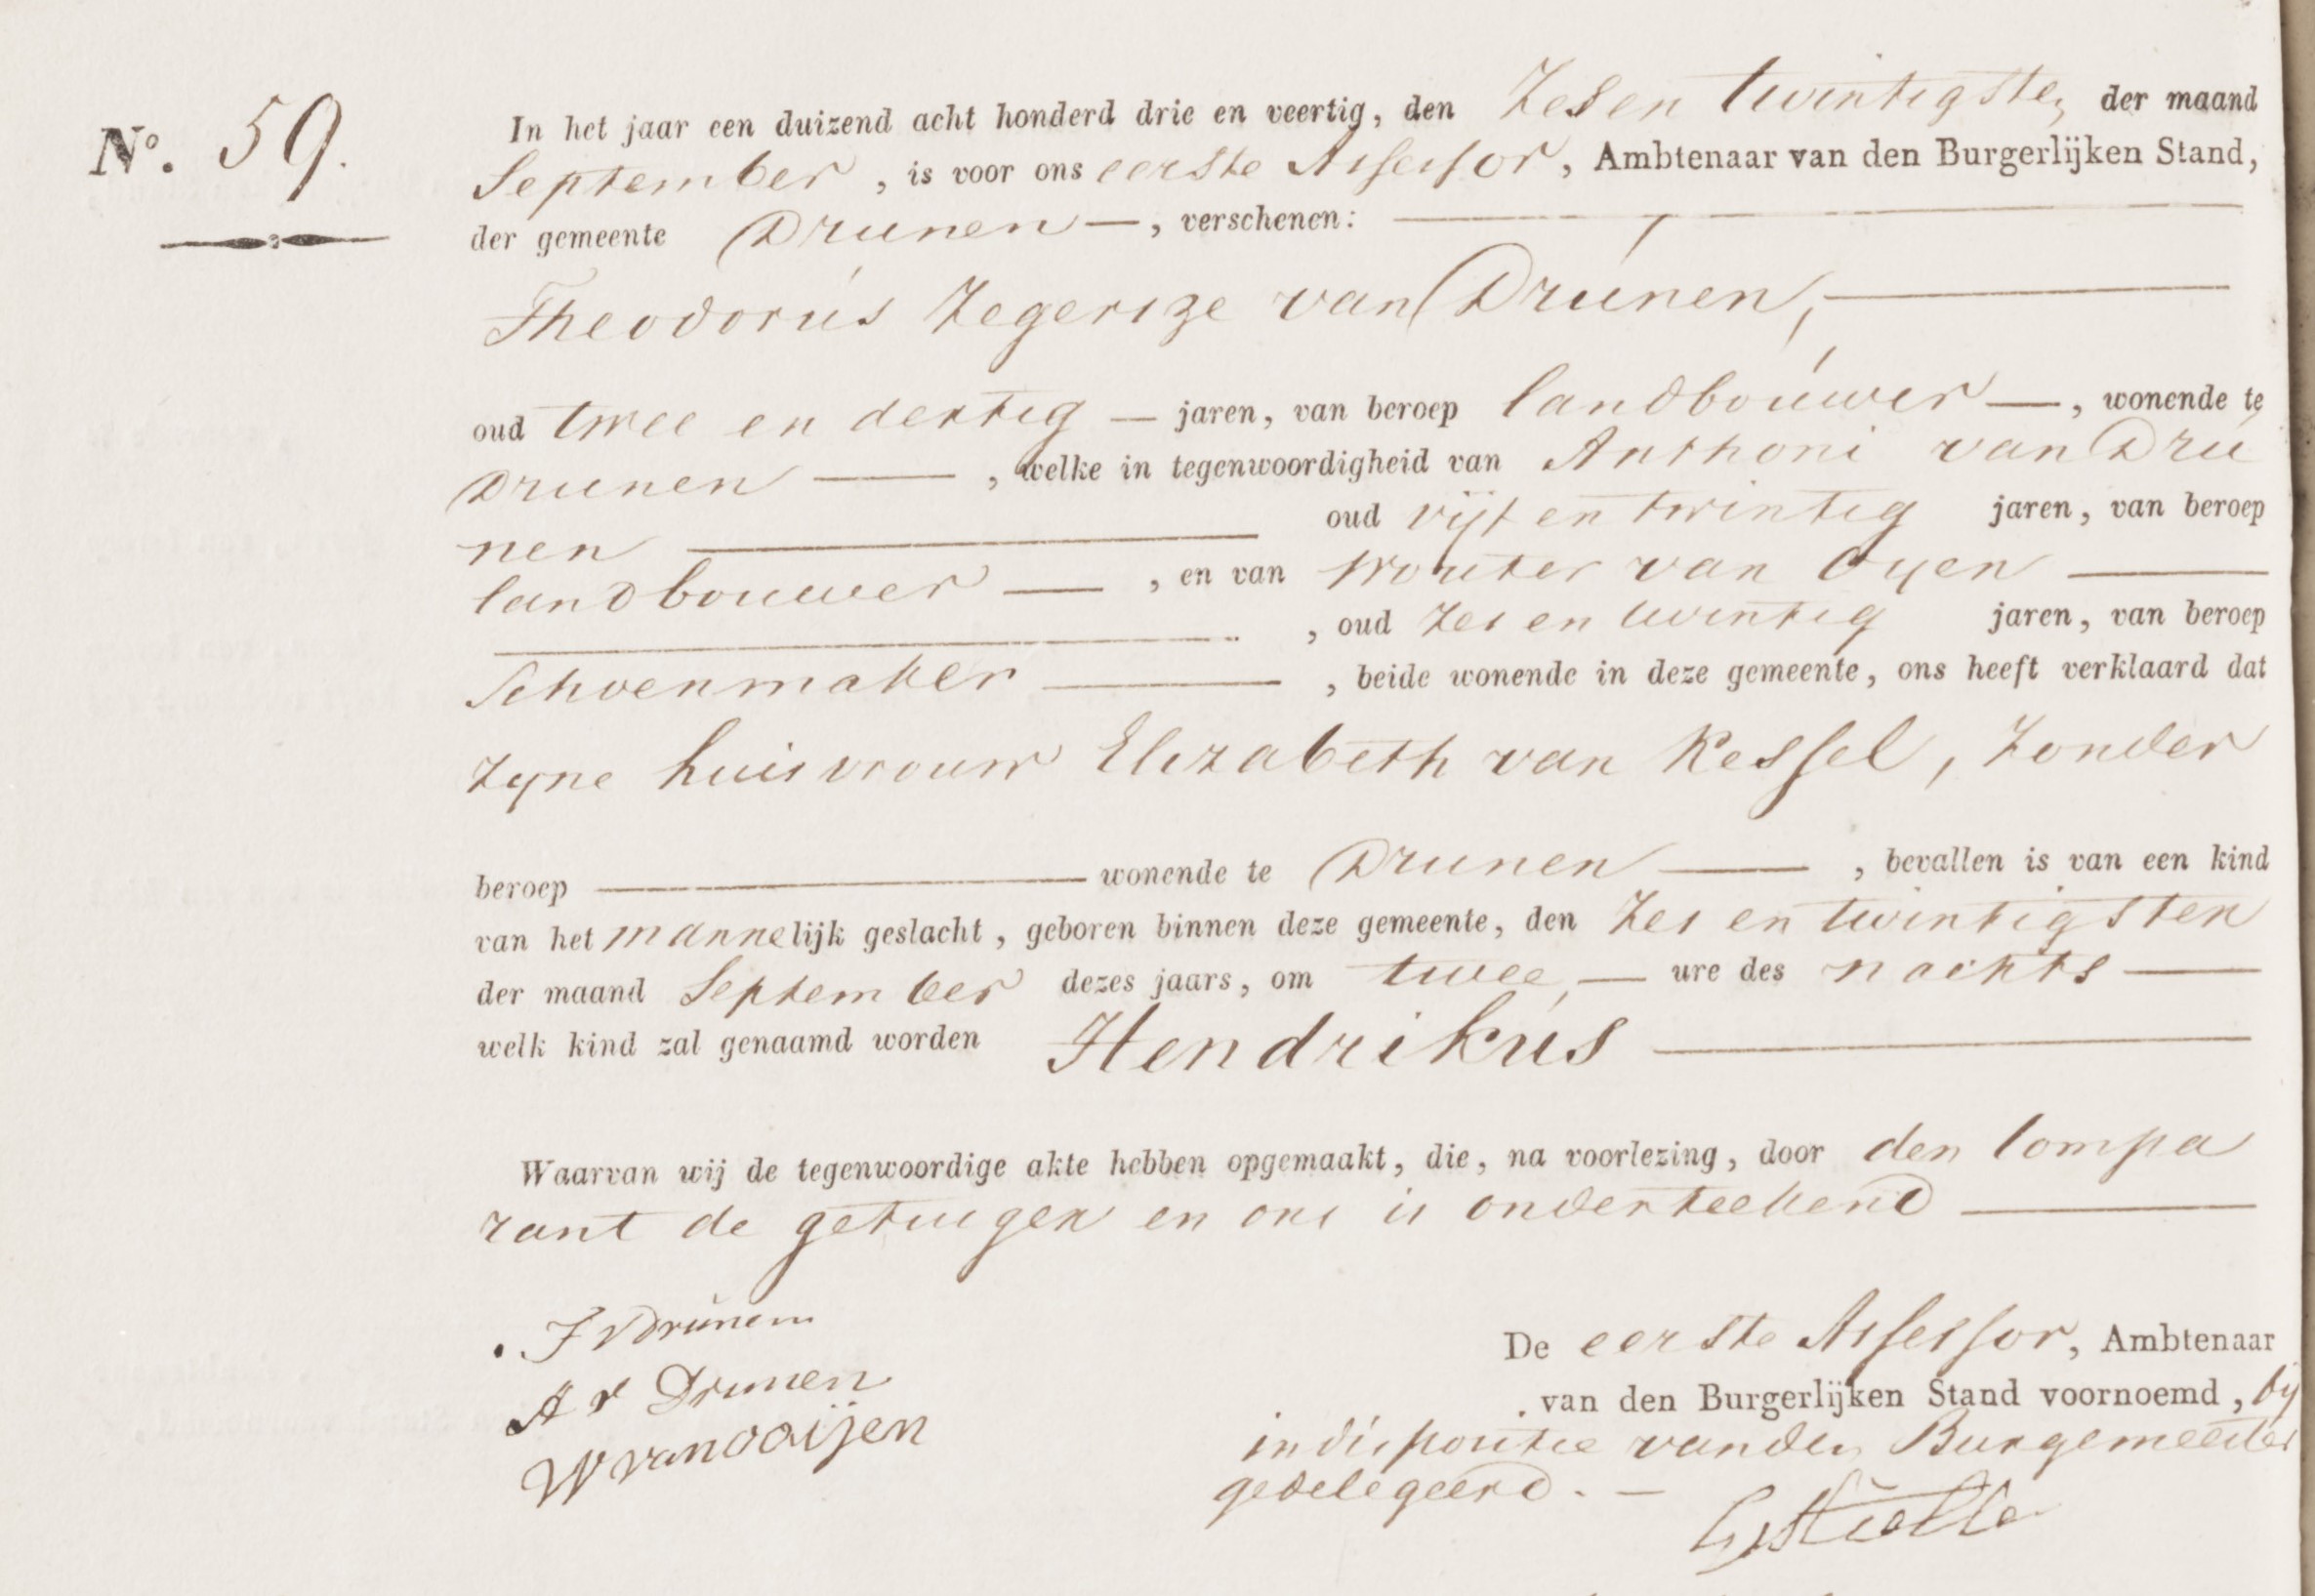 Nº. 59.
In het jaar een duizend acht honderd drie en veertig, den Zes en twintigsten der maand
September, is voor ons eerste Assessor, Ambtenaar van den Burgerlijken Stand,
der gemeente Drunen —, verschenen: —
Theodorus Zegersze van Drúnen, —
oud twee en dertig — jaren, van beroep landboúwer —, wonende te
Drunen —, welke in tegenwoordigheid van Anthoni van Drú
nen — oud vijf en twintig jaren, van beroep
landbouwer —, en van Wouter van Oyen —
—, oud Zes en twintig jaren, van beroep
Schoenmaker —, beide wonende in deze gemeente, ons heeft verklaard dat
Zyne huisvrouw Elizabeth van Kessel, Zonder
beroep — wonende te Drunen —, bevallen is van een kind
van het mannelijk geslacht, geboren binnen deze gemeente, den Zes en twintigsten
der maand September dezes jaars, om twee, — ure des nachts —
welk kind zal genaamd worden Hendrikús —
Waarvan wij de tegenwoordige akte hebben opgemaakt, die, na voorlezing, door den Compa
rant de getuigen en ons is onderteekend —
T V Drúnen
A v Drunen
W van ooijen
De eerste Assessor, Ambtenaar
van den Burgerlijken Stand voornoemd, by
indispositie van den Burgemeester
gedelegeerd. —